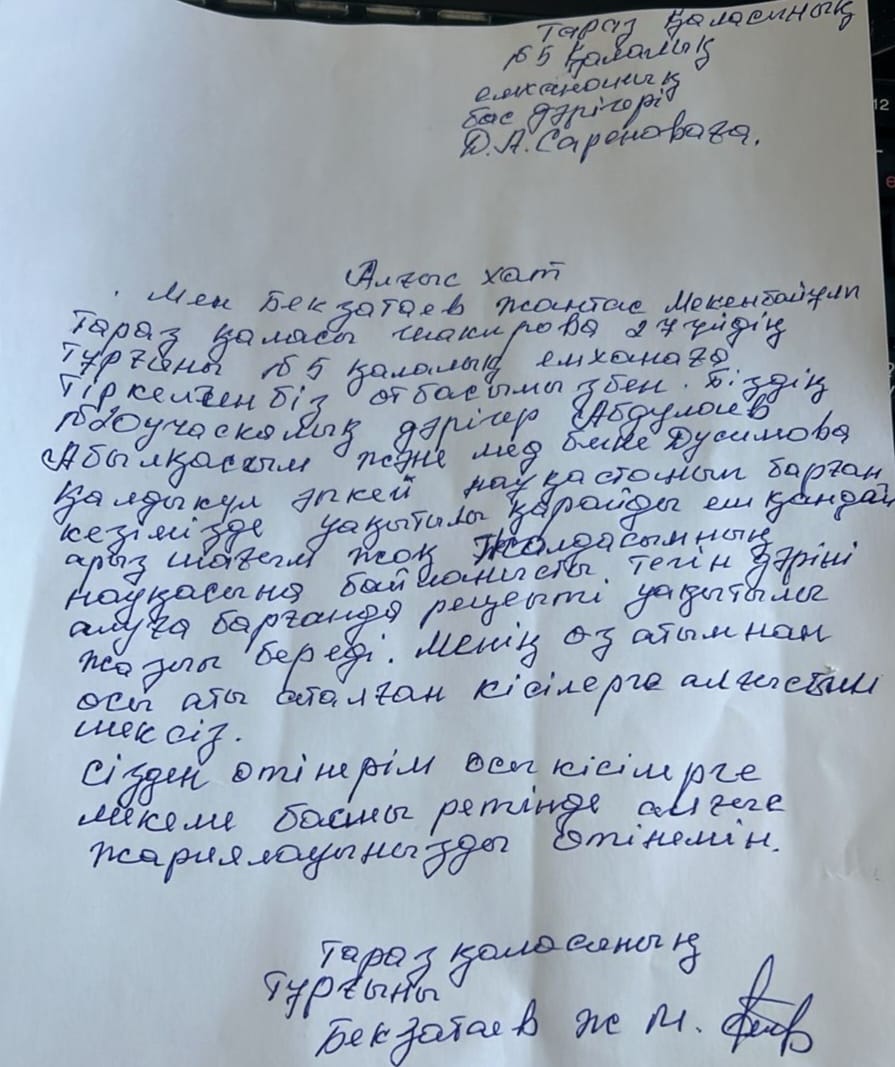 Тараз қаласының
№5 қалалық
емхананың
бас дәрігері
Д.А.Сареноваға.
Алғыс хат
Мен Бекзатаев Жантас Мекенбайұлы
Тараз қаласы Шакирова 27 үйдің
тұрғыны №5 қалалық емханаға
тіркелген біз отбасымызбен. Біздің
№20 участкалық дәрігер Абдулаев
Абылқасым және мед бике Дусимова
Қалдыкул әпкей науқастанып барған
кезімізде уақытылы қарайды еш қандай
арыз шағым жоқ Жолдасымның
науқасына байланысты тегін дәріні
алуға барғанда рецепті уақытылы
жазып береді. Менің өз атымнан
осы аты аталған кісілерге алғыстым
шексіз.
Сізден өтінерім осы кісілерге
мекеме басшы ретінде алғыс
жариялауыңызды өтінемін.
Тараз қаласының
тұрғыны
Бекзатаев Ж М.